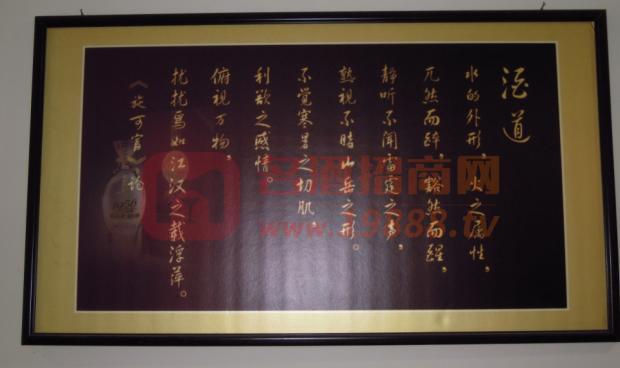 酒道
水的外形、火之属性，
兀然而醉、豁然而醒，
静听不闻雷霆之声，
熟视不睹山岳之形。
不觉寒暑之切肌，
利欲之感情。
俯视万物，
扰扰焉如江汉之载浮萍。
名酒招商网
www.59888.tv
1956